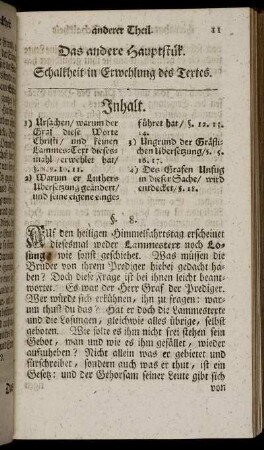 anderer Theil. 11
Das andere Hauptstük.
Schalkheit in Erwehlung des Textes.
Inhalt.
1) Ursachen/ warum der
Graf diese Worte
Christi/ und keinen
Lammes-Text dieses
mahl erwehlet hat/
§. 8. 9. 10. 11.
2) Warum er Luthers
Ubersetzung geändert/
und seine eigene einge-
führet hat/ §. 12. 13.
14.
3) Ungrund der Gräfli-
chen Ubersetzung/ §. 15.
16. 17.
4) Des Grafen Unfug
in dieser Sache/ wird
entdecket/ §. 18.
§. 8.
Auf den heiligen Himmelfahrtstag erscheinet
diesesmal weder Lammestext noch Lo-
sung/ wie sonst geschiehet. Was müssen die
Brüder von ihrem Prediger hiebei gedacht ha-
ben? Doch diese Frage ist bei ihnen leicht beant-
wortet. Es war der Herr Graf der Prediger.
Wer würde sich erkühnen, ihn zu fragen: war-
um thust du das? Hat er doch die Lammestexte
und die Losungen, gleichwie alles übrige, selbst
geboten. Wie solte es ihm nicht frei stehen sein
Gebot, wan und wie es ihm gefället, wieder
aufzuheben? Nicht allein was er gebietet und
fürschreibet, sondern auch was er thut, ist ein
Gesetz: und der Gehorsam seiner Leute gibt sich
von